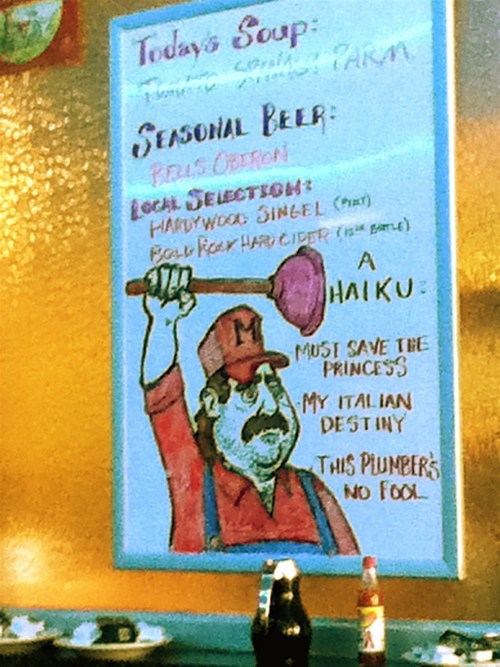 Today's Soup:
TOMATO SPINACH PARM
SEASONAL BEER:
BELLS OBERON
LOCAL SELECTION:
HARDYWOOD SINGEL (PINT)
BOLD ROCK HARD CIDER (12oz BOTTLE)
A
HAIKU:
MUST SAVE THE
PRINCESS
MY ITALIAN
DESTINY
THIS PLUMBER'S
NO FOOL
M